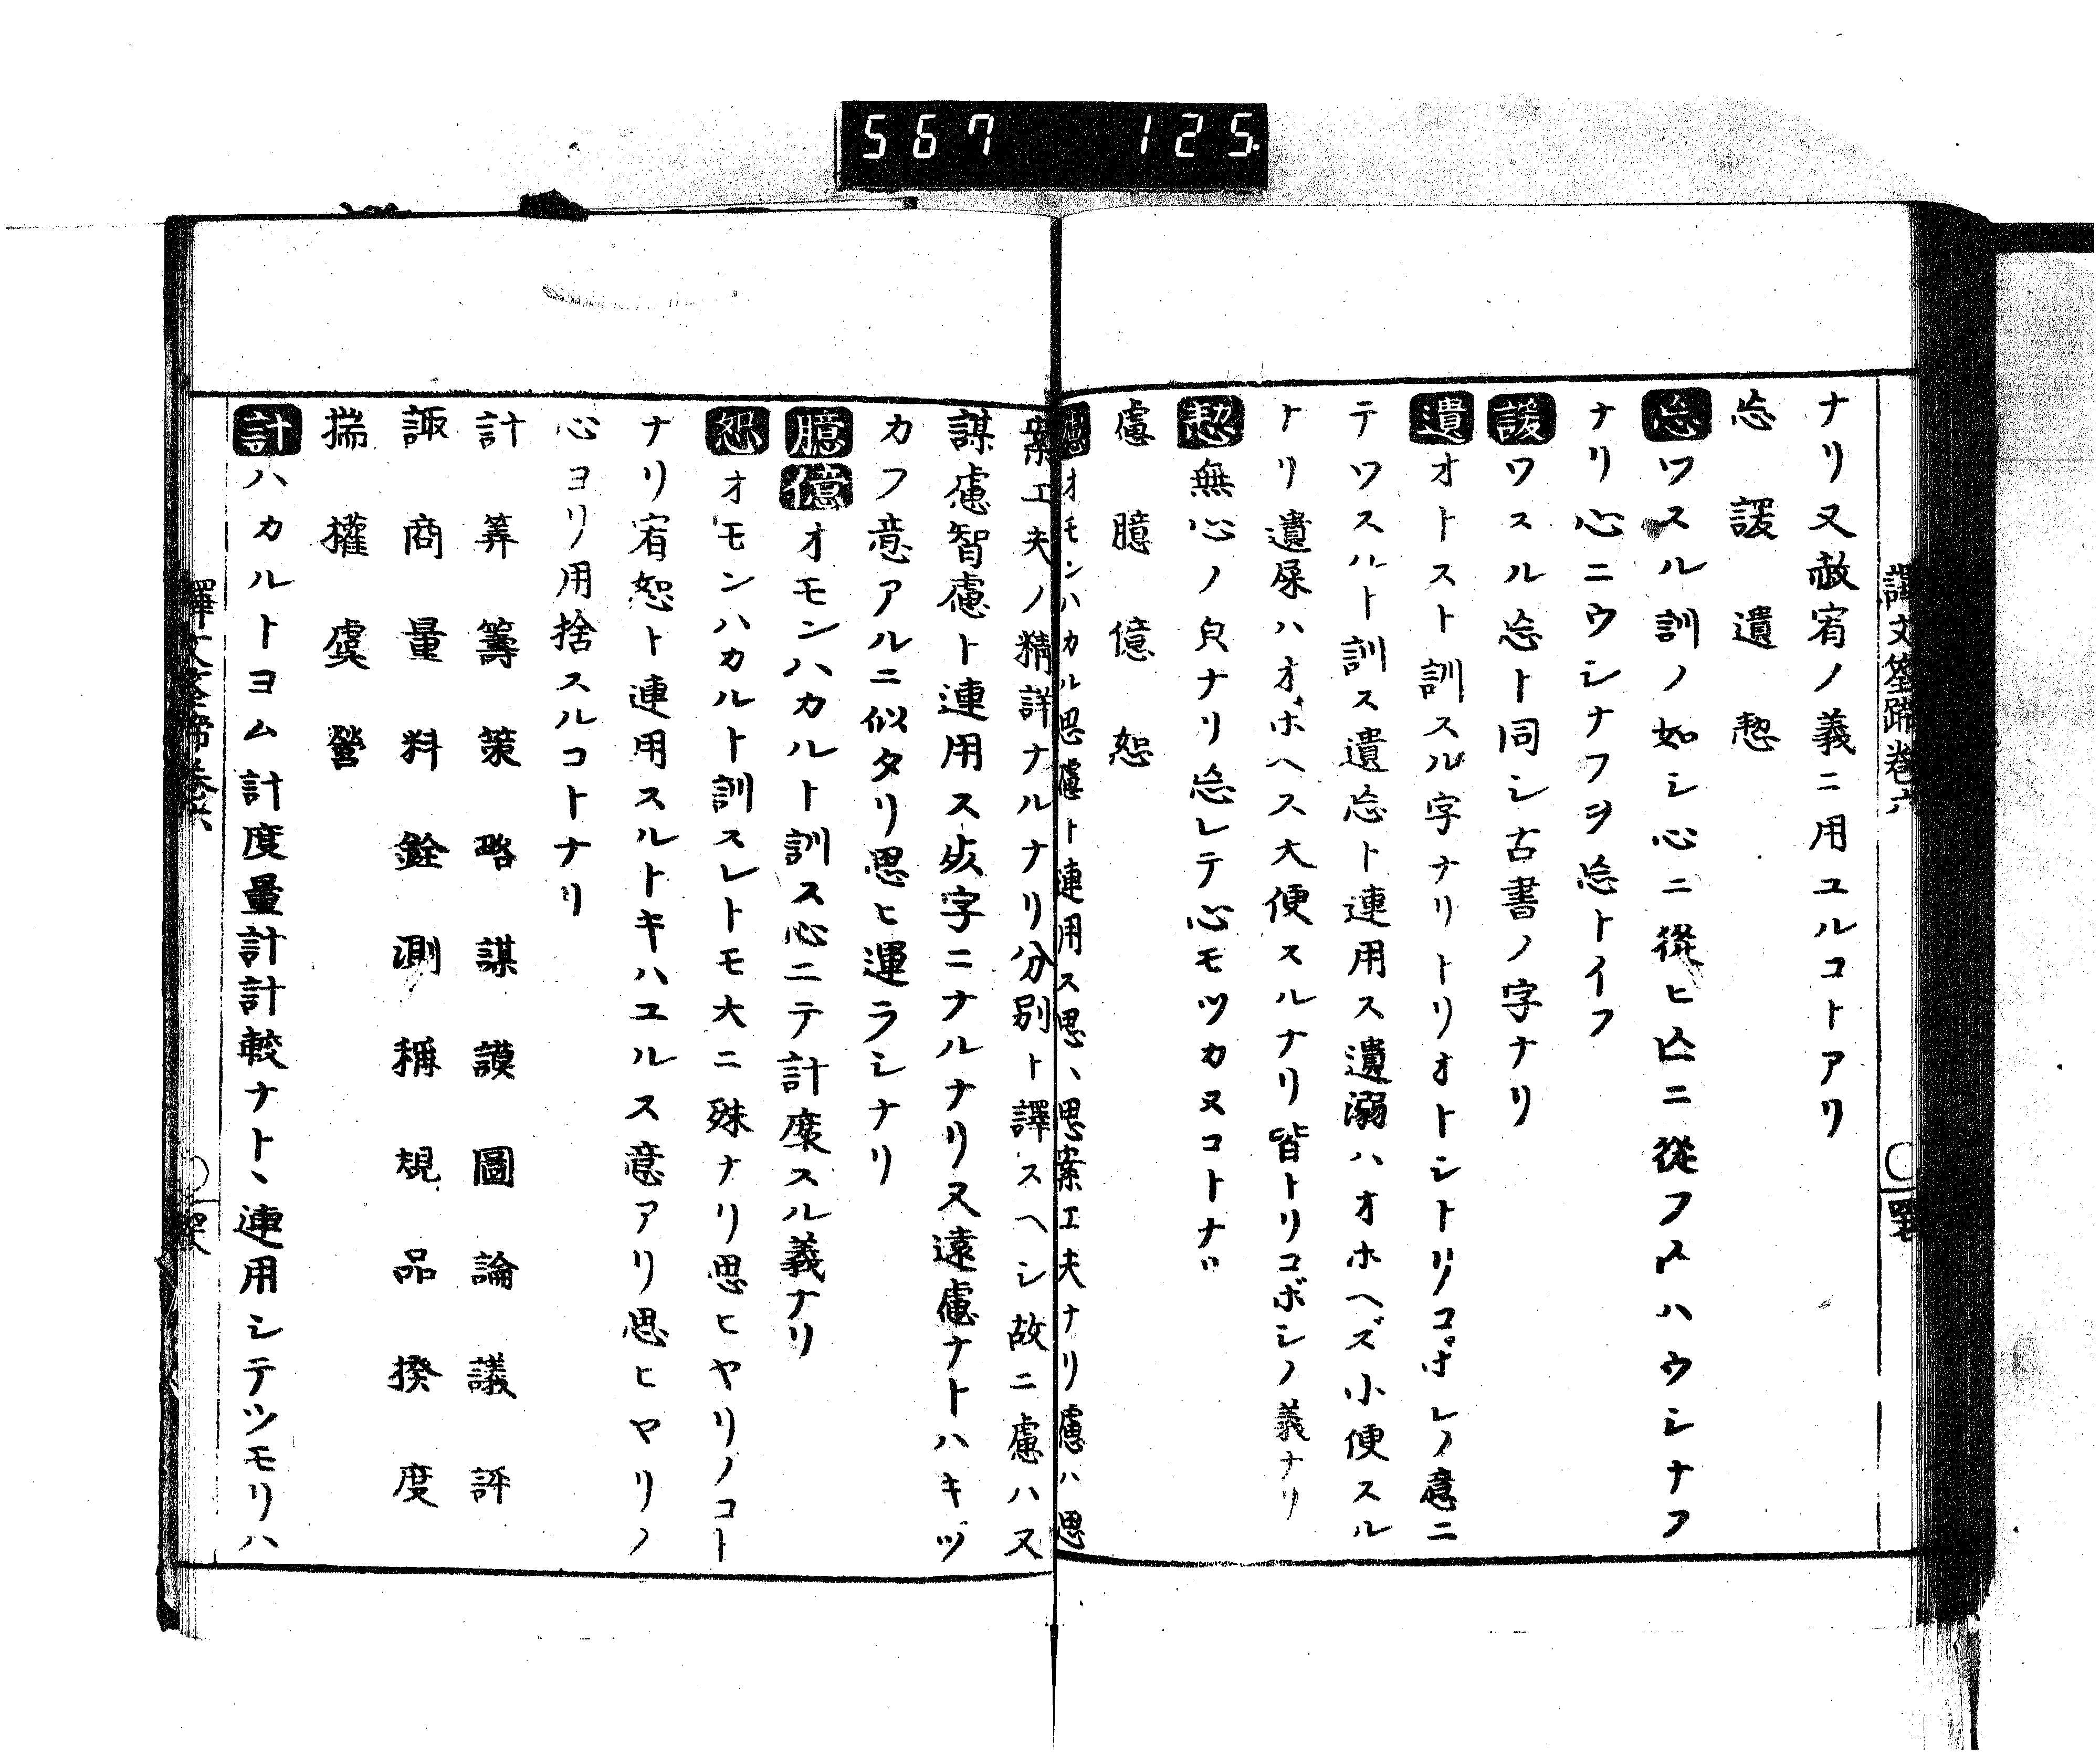 567 125.
譯文筌蹄卷六
ナリ又赦宥ノ義ニ用ユルコトアリ
忘 諼 遺 恝
忘ワスル訓ノ如シ心ニ從ヒ亾ニ從フ亾ハウシナフ
ナリ心ニウシナフヲ忘トイフ
諼ワスル忘ト同シ古書ノ字ナリ
遺オトスト訓スル字ナリトリオトシトリコボシノ意ニ
テワスルト訓ス遺忘ト連用ス遺溺ハオホヘズ小便スル
ナリ遺屎ハオボヘス大便スルナリ皆トリコボシノ義ナリ
恝無心ノ皃ナリ忘レテ心モツカヌコトナリ
慮 臆 億 恕
慮オモンハカル思慮ト連用ス思ハ思案工夫ナリ慮ハ思
案工夫ノ精詳ナルナリ分別ト譯スヘシ故ニ慮ハ又
謀慮智慮ト連用ス㱏字ニナルナリ又遠慮ナトハキヅ
カフ意アルニ似タリ思ヒ運ラシナリ
臆億オモンハカルト訓ス心ニテ計麋スル義ナリ
恕オモンハカルト訓スレトモ大ニ殊ナリ思ヒヤリノコト
ナリ宥恕ト連用スルトキハユルス意アリ思ヒヤリノ
心ヨリ用捨スルコトナリ
計 筭 籌 策 略 謀 謨 圖 論 議 評
諏 商 量 料 銓 測 稱 規 品 揆 度
揣 攉 虞 營
計ハカルトヨム計度量計計較ナトヽ連用シテツモリハ
譯文筌蹄卷六